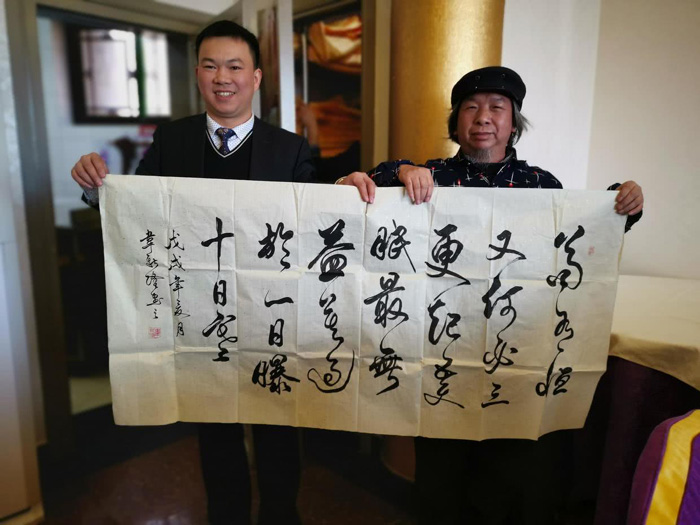 苟有恒
又何必三
更起五更
眠最無
益莫過
於一日曝
十日寒
戊戌年夏月
韋書之